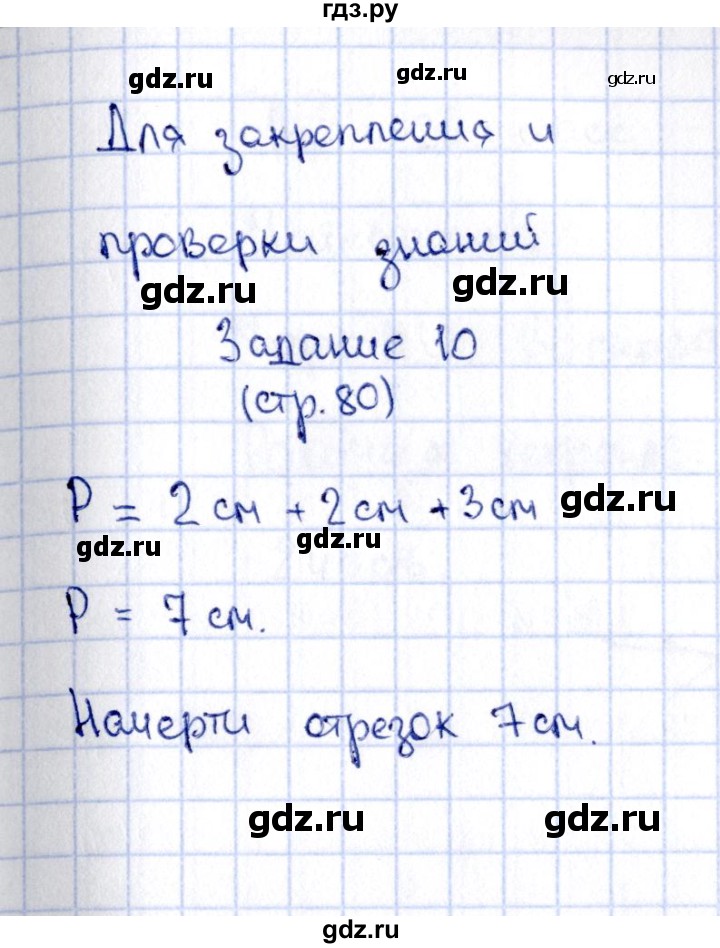 гдз.ру
gdz.ru gdz.ru gdz.ru
Для закрепления и
проверки знаний
gdz.ru gdz.ru
Задание 10
(стр. 80)
P = 2 см + 2 см + 3 см gdz.ru
gdz.ru gdz.ru
P = 7 см.
Начерти отрезок 7 см.
gdz.ru gdz.ru
gdz.ru